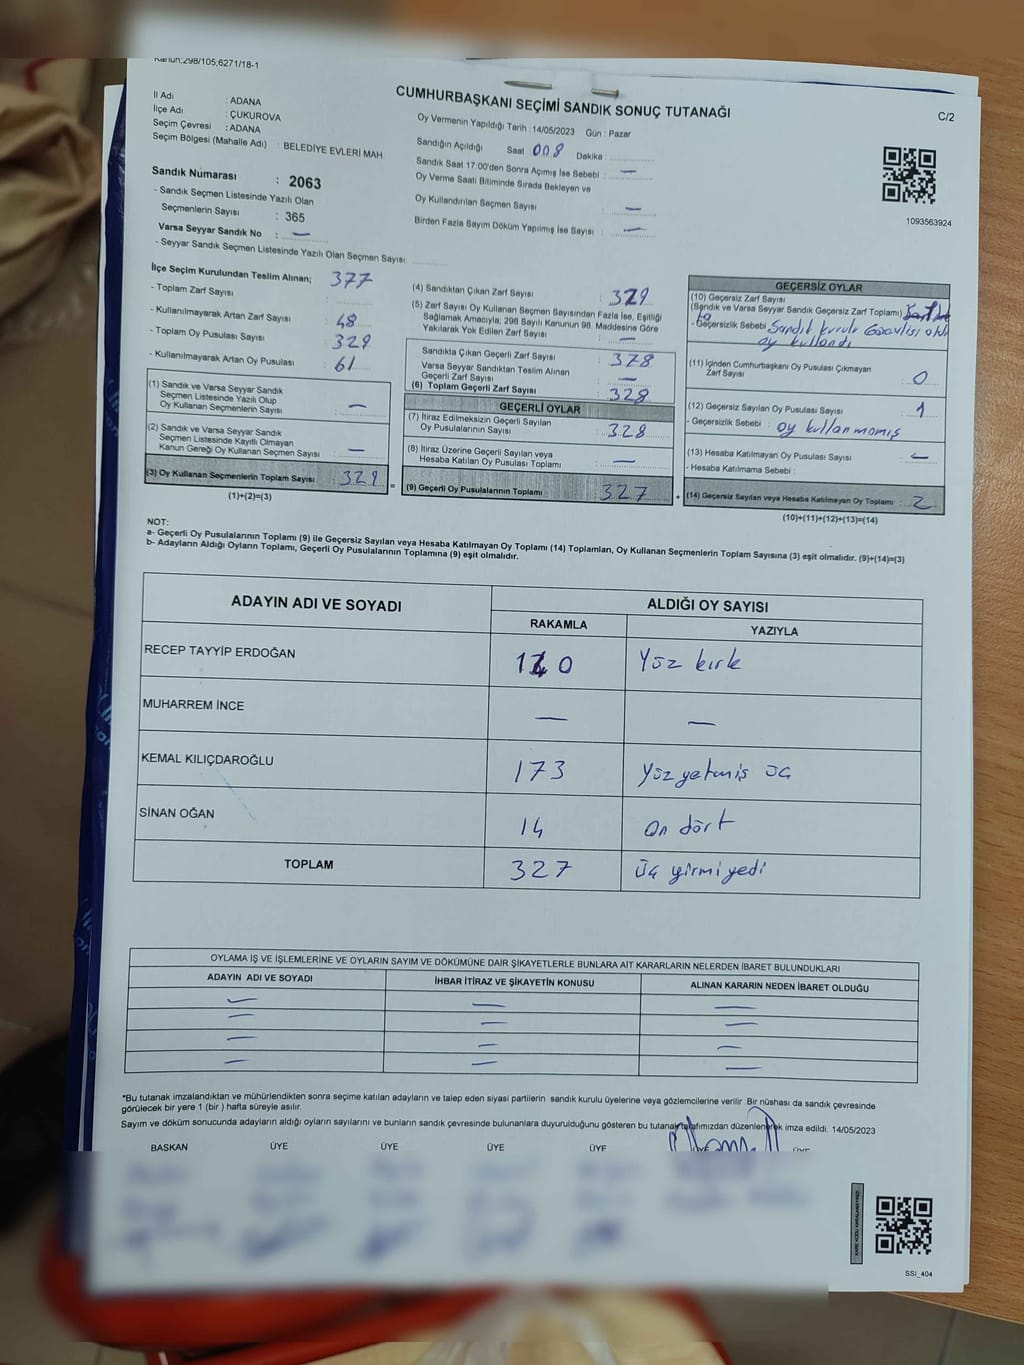 Kanun;298/105;6271/18-1
CUMHURBAŞKANI SEÇİMİ SANDIK SONUÇ TUTANAĞI
C/2
İl Adı : ADANA
İlçe Adı : ÇUKUROVA
Seçim Çevresi : ADANA
Seçim Bölgesi (Mahalle Adı) : BELEDİYE EVLERİ MAH.
Sandık Numarası : 2063
- Sandık Seçmen Listesinde Yazılı Olan
Seçmenlerin Sayısı : 365
Varsa Seyyar Sandık No : —
- Seyyar Sandık Seçmen Listesinde Yazılı Olan Seçmen Sayısı:
Oy Vermenin Yapıldığı Tarih : 14/05/2023 Gün : Pazar
Sandığın Açıldığı Saat 008 Dakika :
Sandık Saat 17:00'den Sonra Açımış İse Sebebi : —
Oy Verme Saati Bitiminde Sırada Bekleyen ve
Oy Kullandırılan Seçmen Sayısı : —
Birden Fazla Sayım Döküm Yapılmış İse Sayısı : —
1093563924
İlçe Seçim Kurulundan Teslim Alınan; 377
- Toplam Zarf Sayısı :
- Kullanılmayarak Artan Zarf Sayısı : 48
- Toplam Oy Pusulası Sayısı : 329
- Kullanılmayarak Artan Oy Pusulası : 61
(1) Sandık ve Varsa Seyyar Sandık
Seçmen Listesinde Yazılı Olup
Oy Kullanan Seçmenlerin Sayısı : —
(2) Sandık ve Varsa Seyyar Sandık
Seçmen Listesinde Kayıtlı Olmayan
Kanun Gereği Oy Kullanan Seçmen Sayısı : —
(3) Oy Kullanan Seçmenlerin Toplam Sayısı : 329 =
(1)+(2)=(3)
(4) Sandıktan Çıkan Zarf Sayısı : 329
(5) Zarf Sayısı Oy Kullanan Seçmen Sayısından Fazla İse, Eşitliği
Sağlamak Amacıyla; 298 Sayılı Kanunun 98. Maddesine Göre
Yakılarak Yok Edilen Zarf Sayısı : —
Sandıkta Çıkan Geçerli Zarf Sayısı : 378
Varsa Seyyar Sandıktan Teslim Alınan
Geçerli Zarf Sayısı : —
(6) Toplam Geçerli Zarf Sayısı : 328
GEÇERLİ OYLAR
(7) İtiraz Edilmeksizin Geçerli Sayılan
Oy Pusulalarının Sayısı : 328
(8) İtiraz Üzerine Geçerli Sayılan veya
Hesaba Katılan Oy Pusulası Toplamı : —
(9) Geçerli Oy Pusulalarının Toplamı : 327 +
GEÇERSİZ OYLAR
(10) Geçersiz Zarf Sayısı
(Sandık ve Varsa Seyyar Sandık Geçersiz Zarf Toplamı)
- Geçersizlik Sebebi : Sandık kurulu Görevlisi
oy kullandı
(11) İçinden Cumhurbaşkanı Oy Pusulası Çıkmayan
Zarf Sayısı : 0
(12) Geçersiz Sayılan Oy Pusulası Sayısı : 1
- Geçersizlik Sebebi : oy kullanmamış
(13) Hesaba Katılmayan Oy Pusulası Sayısı : —
- Hesaba Katılmama Sebebi :
(14) Geçersiz Sayılan veya Hesaba Katılmayan Oy Toplamı : 2
(10)+(11)+(12)+(13)=(14)
NOT:
a- Geçerli Oy Pusulalarının Toplamı (9) ile Geçersiz Sayılan veya Hesaba Katılmayan Oy Toplamı (14) Toplamları, Oy Kullanan Seçmenlerin Toplam Sayısına (3) eşit olmalıdır. (9)+(14)=(3)
b- Adayların Aldığı Oyların Toplamı, Geçerli Oy Pusulalarının Toplamına (9) eşit olmalıdır.
ADAYIN ADI VE SOYADI
ALDIĞI OY SAYISI
RAKAMLA YAZIYLA
RECEP TAYYİP ERDOĞAN 140 Yüz kırk
MUHARREM İNCE — —
KEMAL KILIÇDAROĞLU 173 Yüzyetmiş üç
SİNAN OĞAN 14 On dört
TOPLAM 327 Üç yirmi yedi
OYLAMA İŞ VE İŞLEMLERİNE VE OYLARIN SAYIM VE DÖKÜMÜNE DAİR ŞİKAYETLERLE BUNLARA AİT KARARLARIN NELERDEN İBARET BULUNDUKLARI
ADAYIN ADI VE SOYADI İHBAR İTİRAZ VE ŞİKAYETİN KONUSU ALINAN KARARIN NEDEN İBARET OLDUĞU
— — —
— — —
— — —
— — —
*Bu tutanak imzalandıktan ve mühürlendikten sonra seçime katılan adayların ve talep eden siyasi partilerin sandık kurulu üyelerine veya gözlemcilerine verilir .Bir nüshası da sandık çevresinde
görülecek bir yere 1 (bir ) hafta süreyle asılır.
Sayım ve döküm sonucunda adayların aldığı oyların sayılarını ve bunların sandık çevresinde bulunanlara duyurulduğunu gösteren bu tutanak tarafımızdan düzenlenerek imza edildi. 14/05/2023
BAŞKAN ÜYE ÜYE ÜYE ÜYE ÜYE ÜYE
SSI_404